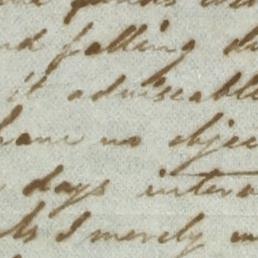 and falling d
it adviseable
have no objec
days interv
I merely